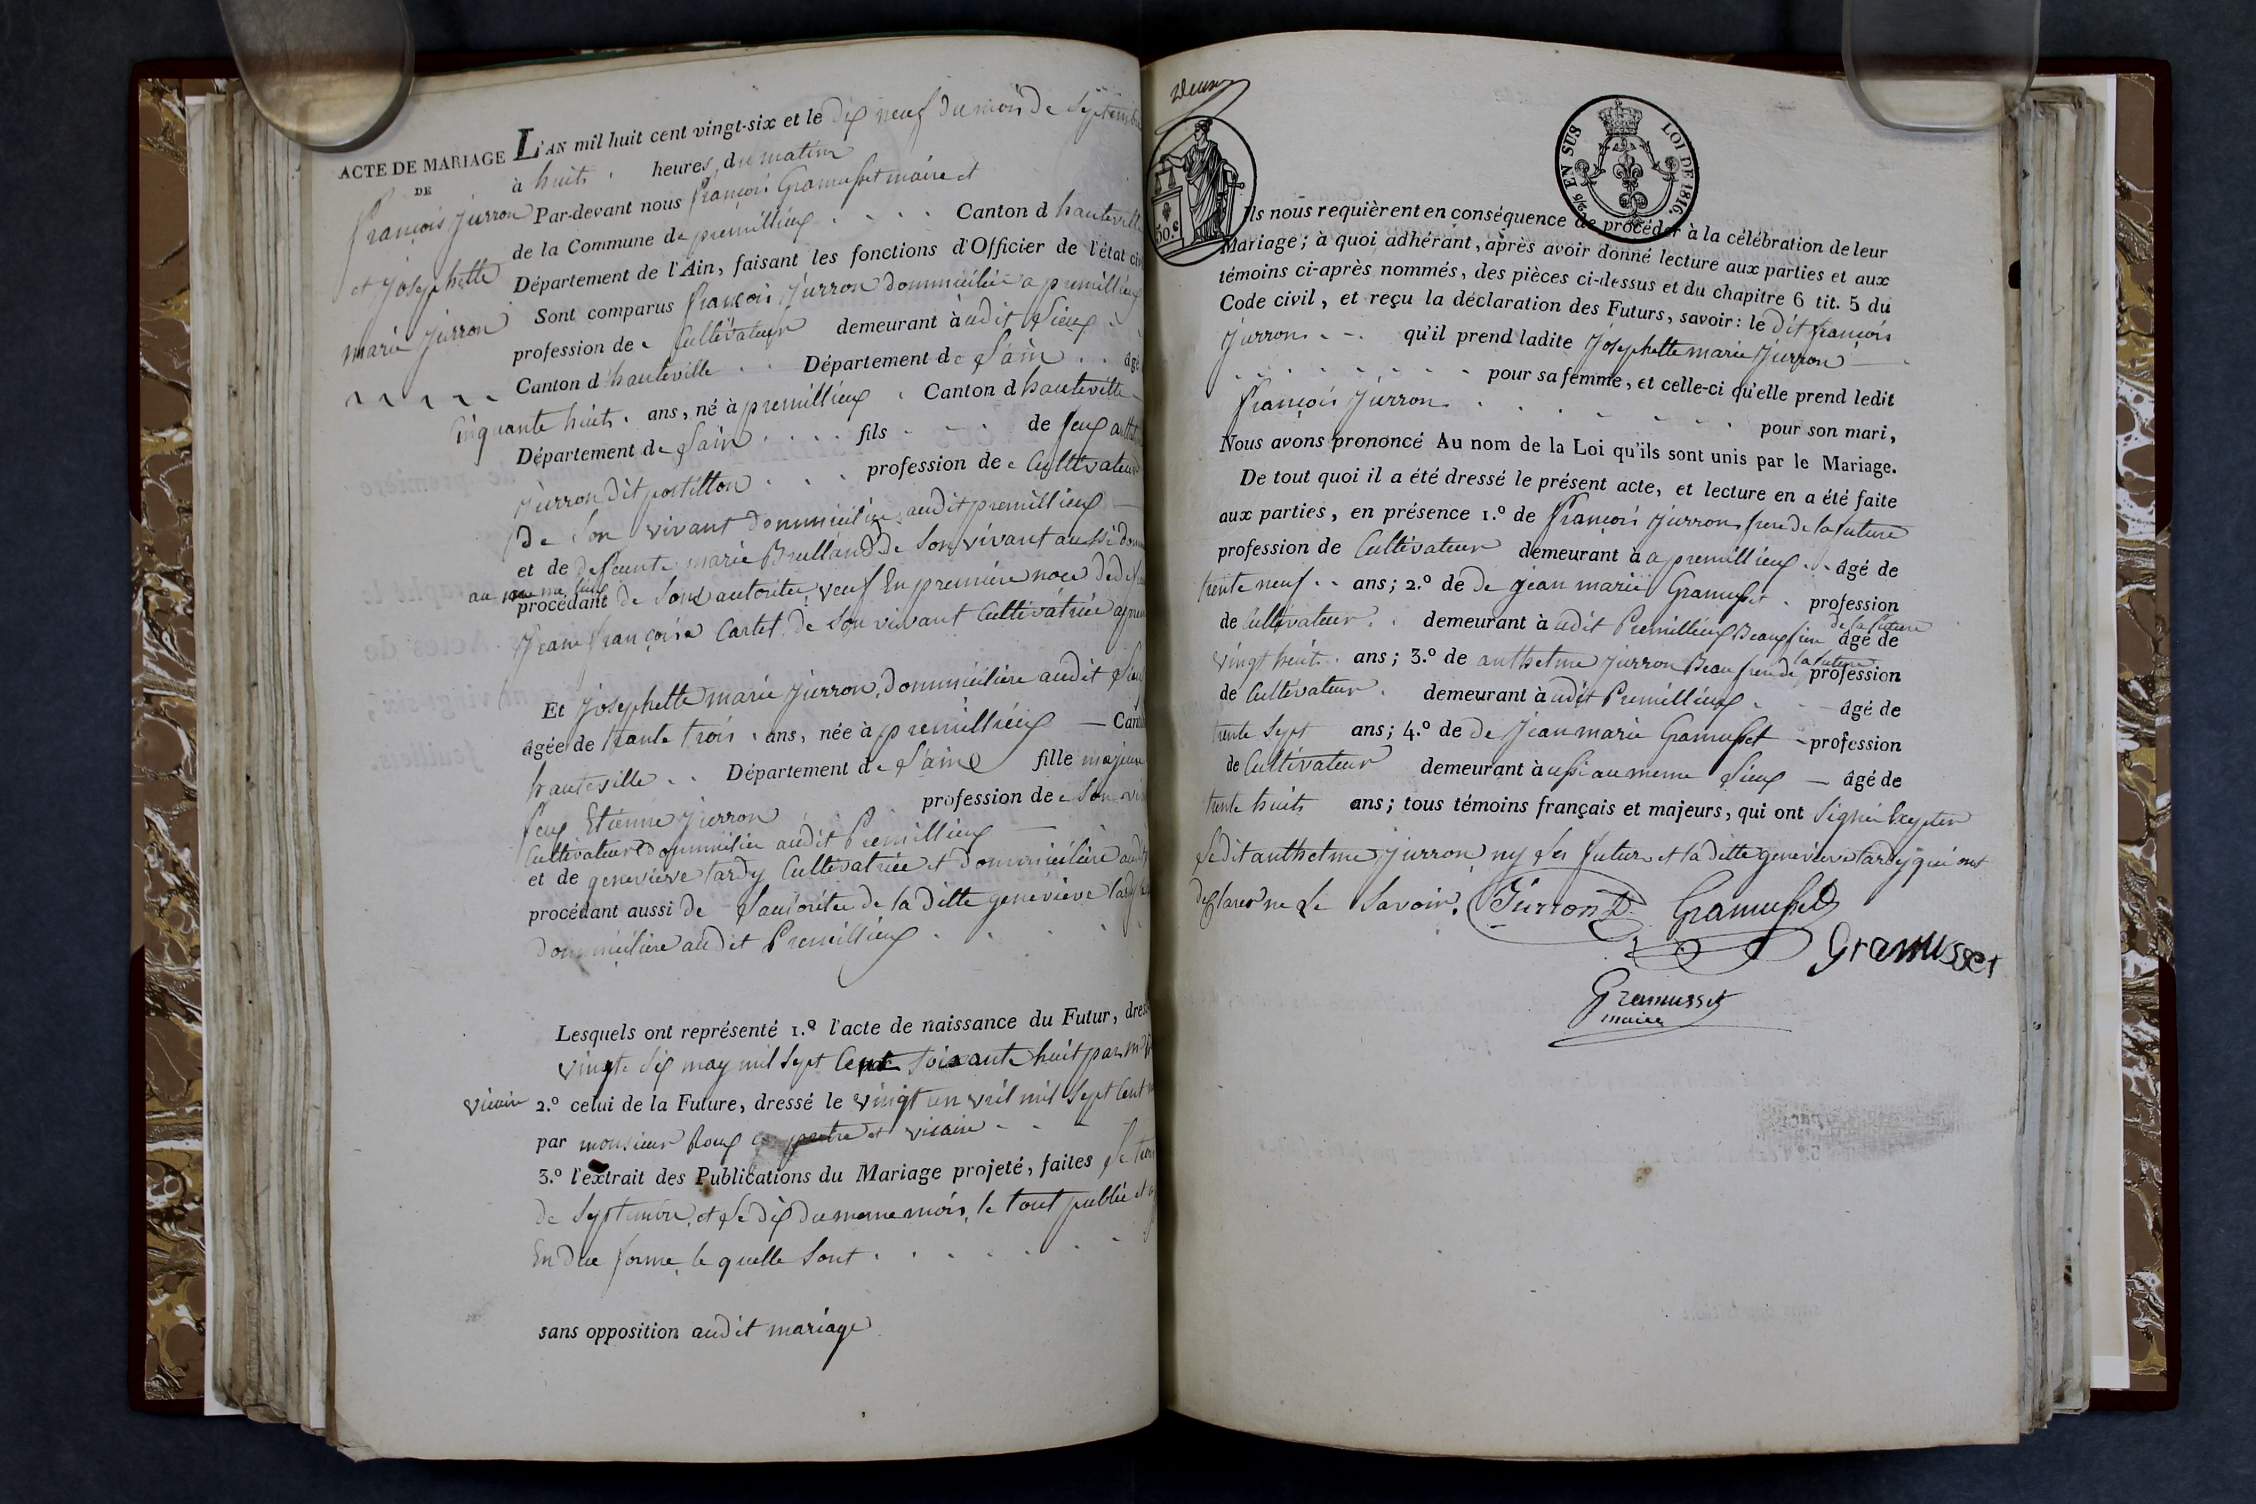 ACTE DE MARIAGE
DE
françois Jurron
et Josephette
marie Jurron
L'AN mil huit cent vingt-six et le dix neuf du mois de Septembre
à huits heures du matin
Par-devant nous françois Gramusset maire et
de la Commune de premillieux Canton d hauteville
Département de l'Ain, faisant les fonctions d'Officier de l'état civil
Sont comparus françois Jurron dommicilié a premillieux
profession de Cultivateur demeurant à udit lieux
Canton d hauteville Département de l'ain âgé
Cinquante huits ans, né à premillieux Canton d hauteville
Département de l'ain fils de feux
Jurron dit postillon profession de Cultivateur
de son vivant dommicilié audit premillieux
et de deffeunte marie de Son vivant aussi
au meme lieux
procédant de Sont autoritée, veuf En première noce de
Jeane françoise Cartet de Son vivant Cultivatrice
Et Josephette marie Jurron, dommicilière audit lieux
âgée de trante trois ans, née à premillieux Canton
hauteville Département de l'ain fille majeure
feux Etienne Jurron profession de Son
Cultivateur dommicilié audit Premillieux
et de genevieve tardy Cultivatrice et dommicilière
procédant aussi de l'autoritée de la ditte genevieve
dommicilière audit Premillieux
Lesquels ont représenté 1.º l'acte de naissance du Futur,
vingt Six may mil Sept Cent Soixante huit par
vicaire
2.º celui de la Future, dressé le vingt un mil Sept Cent
par monsieur Roux et vicaire
3.º l'extrait des Publications du Mariage projeté, faites le
de Septembre, et le dix du meme mois, le tout publié et
En due forme, le quelle Sont
sans opposition audit mariage
Deux
50.c
EN SUS
LOI DE 1816.
Ils nous requièrent en conséquence de procéder à la célébration de leur
Mariage; à quoi adhérant, après avoir donné lecture aux parties et aux
témoins ci-après nommés, des pièces ci-dessus et du chapitre 6 tit. 5 du
Code civil, et reçu la déclaration des Futurs, savoir: le dit françois
Jurron qu'il prend ladite Josephette marie Jurron
pour sa femme, et celle-ci qu'elle prend ledit
françois Jurron
pour son mari,
Nous avons prononcé Au nom de la Loi qu'ils sont unis par le Mariage.
De tout quoi il a été dressé le présent acte, et lecture en a été faite
aux parties, en présence 1.º de françois Jurron frere de la future
profession de Cultivateur demeurant à a premillieux âgé de
trente neuf ans; 2.º de de jean marie Gramusset profession
de Cultivateur demeurant à udit Premillieux Beaufrere de la future âgé de
vingt huit ans; 3.º de anthelme Jurron Beau frere de la future profession
de Cultivateur demeurant à udit Premillieux âgé de
trente Sept ans; 4.º de de Jean marie Gramusset profession
de Cultivateur demeurant à ussi au meme lieux âgé de
trente huits ans; tous témoins français et majeurs, qui ont Signér Excepter
le dit anthelme Jurron, ny les futur et la ditte genevieve tardy qui ont
declarer ne le Savoir.
Jurron Gramusset
Gramusset
Gramusset
maire